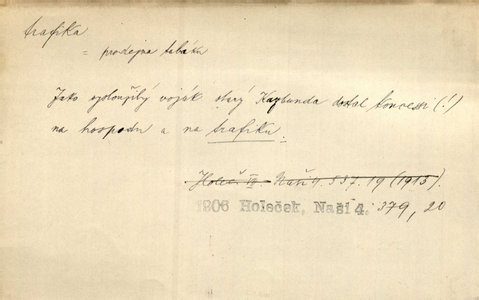 trafika
= prodejna tabáku
Jako vysloužilý voják starý Kazbunda dostal koncessi (!)
na hospodu a na trafiku.
Holeč. IV. Naši 4. 537. 19 (1915).
1906 Holeček, Naši 4. 379, 20